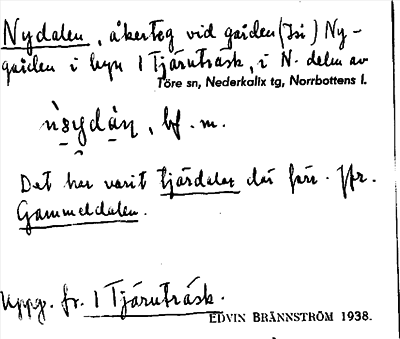 Nydalen, åkerteg vid gården (Isi) Ny-
gården i byn 1 Tjärnträsk, i N. delen av
Töre sn, Nederkalix tg, Norrbottens l.
bf. m.
Det har varit tjärdalar där förr. Jfr.
Gammeldalen.
Uppg. fr. 1 Tjärnträsk.
EDVIN BRÄNNSTRÖM 1938.